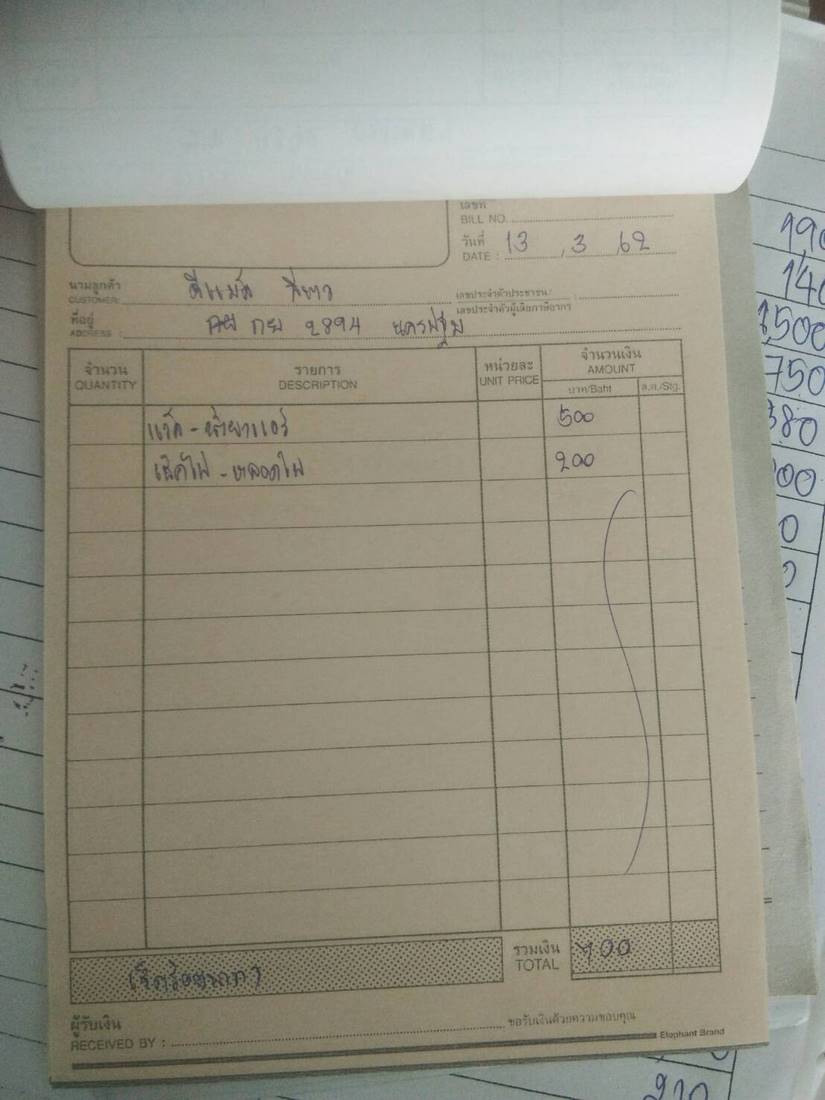 เลขที่
BILL NO.
วันที่ 13 , 3 , 62
DATE :
นามลูกค้า ดีแม็ก สีขาว
CUSTOMER:
เลขประจำตัวประชาชน/
เลขประจำตัวผู้เสียภาษีอากร
ที่อยู่ 2894 นครปฐม
ADDRESS :
จำนวน รายการ หน่วยละ จำนวนเงิน
QUANTITY DESCRIPTION UNIT PRICE AMOUNT
บาท/Baht ส.ต./Stg.
แว็ค - น้ำยาแอร์ 500
เช็คไฟ - หลอดไฟ 200
รวมเงิน 700
TOTAL
(เจ็ดร้อยบาท)
ผู้รับเงิน ขอรับเงินด้วยความขอบคุณ
RECEIVED BY : Elephant Brand
750
380
210